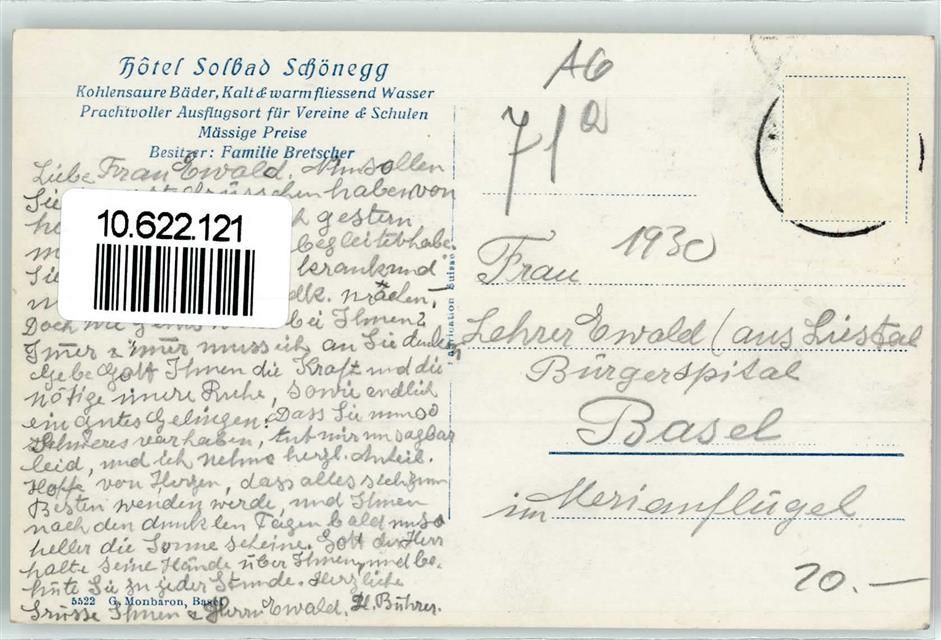 Hôtel Solbad Schönegg
Kohlensaure Bäder, Kalt & warm fliessend Wasser
Prachtvoller Ausflugsort für Vereine & Schulen
Mässige Preise
Besitzer: Familie Bretscher
Liebe Frau Ewald. Nun sollen
Sie haben von
gestern
begleitet habe.
Sie krank und
Doch wie bei Ihnen?
Imer & imer muss ich an Sie denken
Gebe Gott Ihnen die Kraft und die
nötige inere Ruhe, sowie endlich
ein gutes Gelingen! Dass Sie nun so
Schweres vorhaben, tut mir unsagbar
leid, und ich nehme herzl. Anteil.
Hoffe von Herzen, dass alles sich zum
Besten wenden werde, und Ihnen
nach den dunklen Tagen bald um so
heller die Sonne scheine. Gott der Herr
halte seine Hände über Ihnen, und be-
hüte Sie zu jeder Stunde. Herzliche
Grüsse Ihnen & Herrn Ewald. H. Bührer.
5522 G. Monbaron, Basel
10.622.121
Suisse
AG
71a
1930
Frau
Lehrer Ewald (aus Liestal
Bürgerspital
Basel
im Merianflügel
20.—